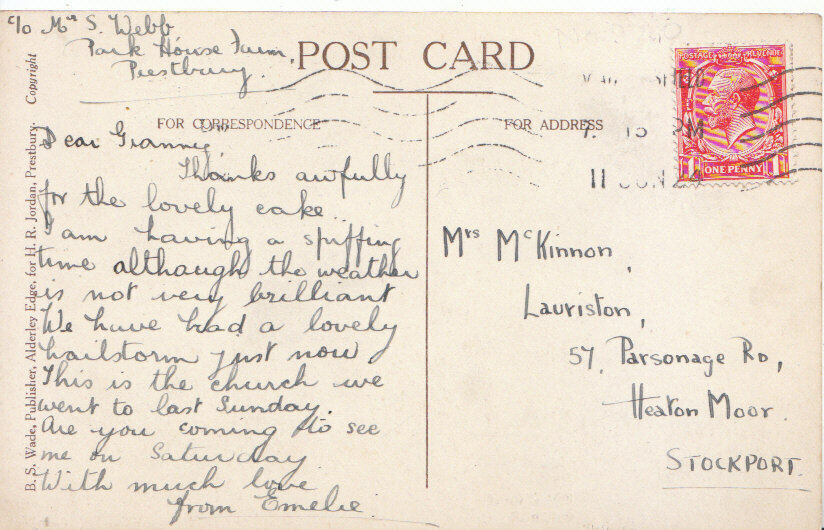 c/o Mrs S. Webb
Park House Farm,
Prestbury.
POST CARD
FOR CORRESPONDENCE
FOR ADDRESS
B. S. Wade, Publisher, Alderley Edge, for H. R. Jordan, Prestbury. Copyright
POSTAGE REVENUE
ONE PENNY
7. 15 PM
11 JUN 24
Dear Granny,
Thanks awfully
for the lovely cake.
I am having a spiffing
time although the weather
is not very brilliant
We have had a lovely
hailstorm just now
This is the church we
went to last Sunday.
Are you coming to see
me on Saturday
With much love
from Emelie.
Mrs McKinnon,
Lauriston,
57, Parsonage Rd,
Heaton Moor.
STOCKPORT.